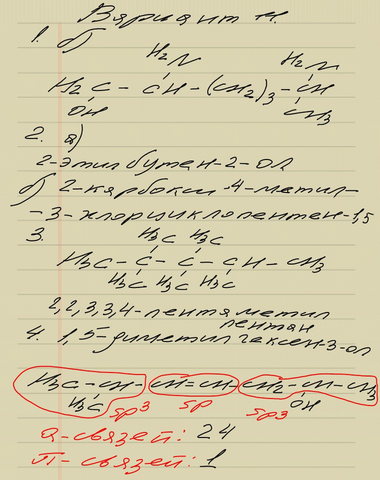 Вариант 14.
1. б)
H₂N H₂N
H₂C - CH - (CH₂)₃ - CH
OH CH₃
2. а)
2-этилбутен-2-ол
б) 2-карбокси-4-метил-
-3-хлорциклопентен-1,5
3. H₃C H₃C
H₃C - C - C - CH - CH₃
H₃C H₃C H₃C
2,2,3,3,4-пентаметил
пентан
4. 1,5-диметилгексен-3-ол
H₃C - CH - CH=CH - CH₂ - CH - CH₃
H₃C sp³ sp sp³ OH
σ-связей: 24
π-связей: 1